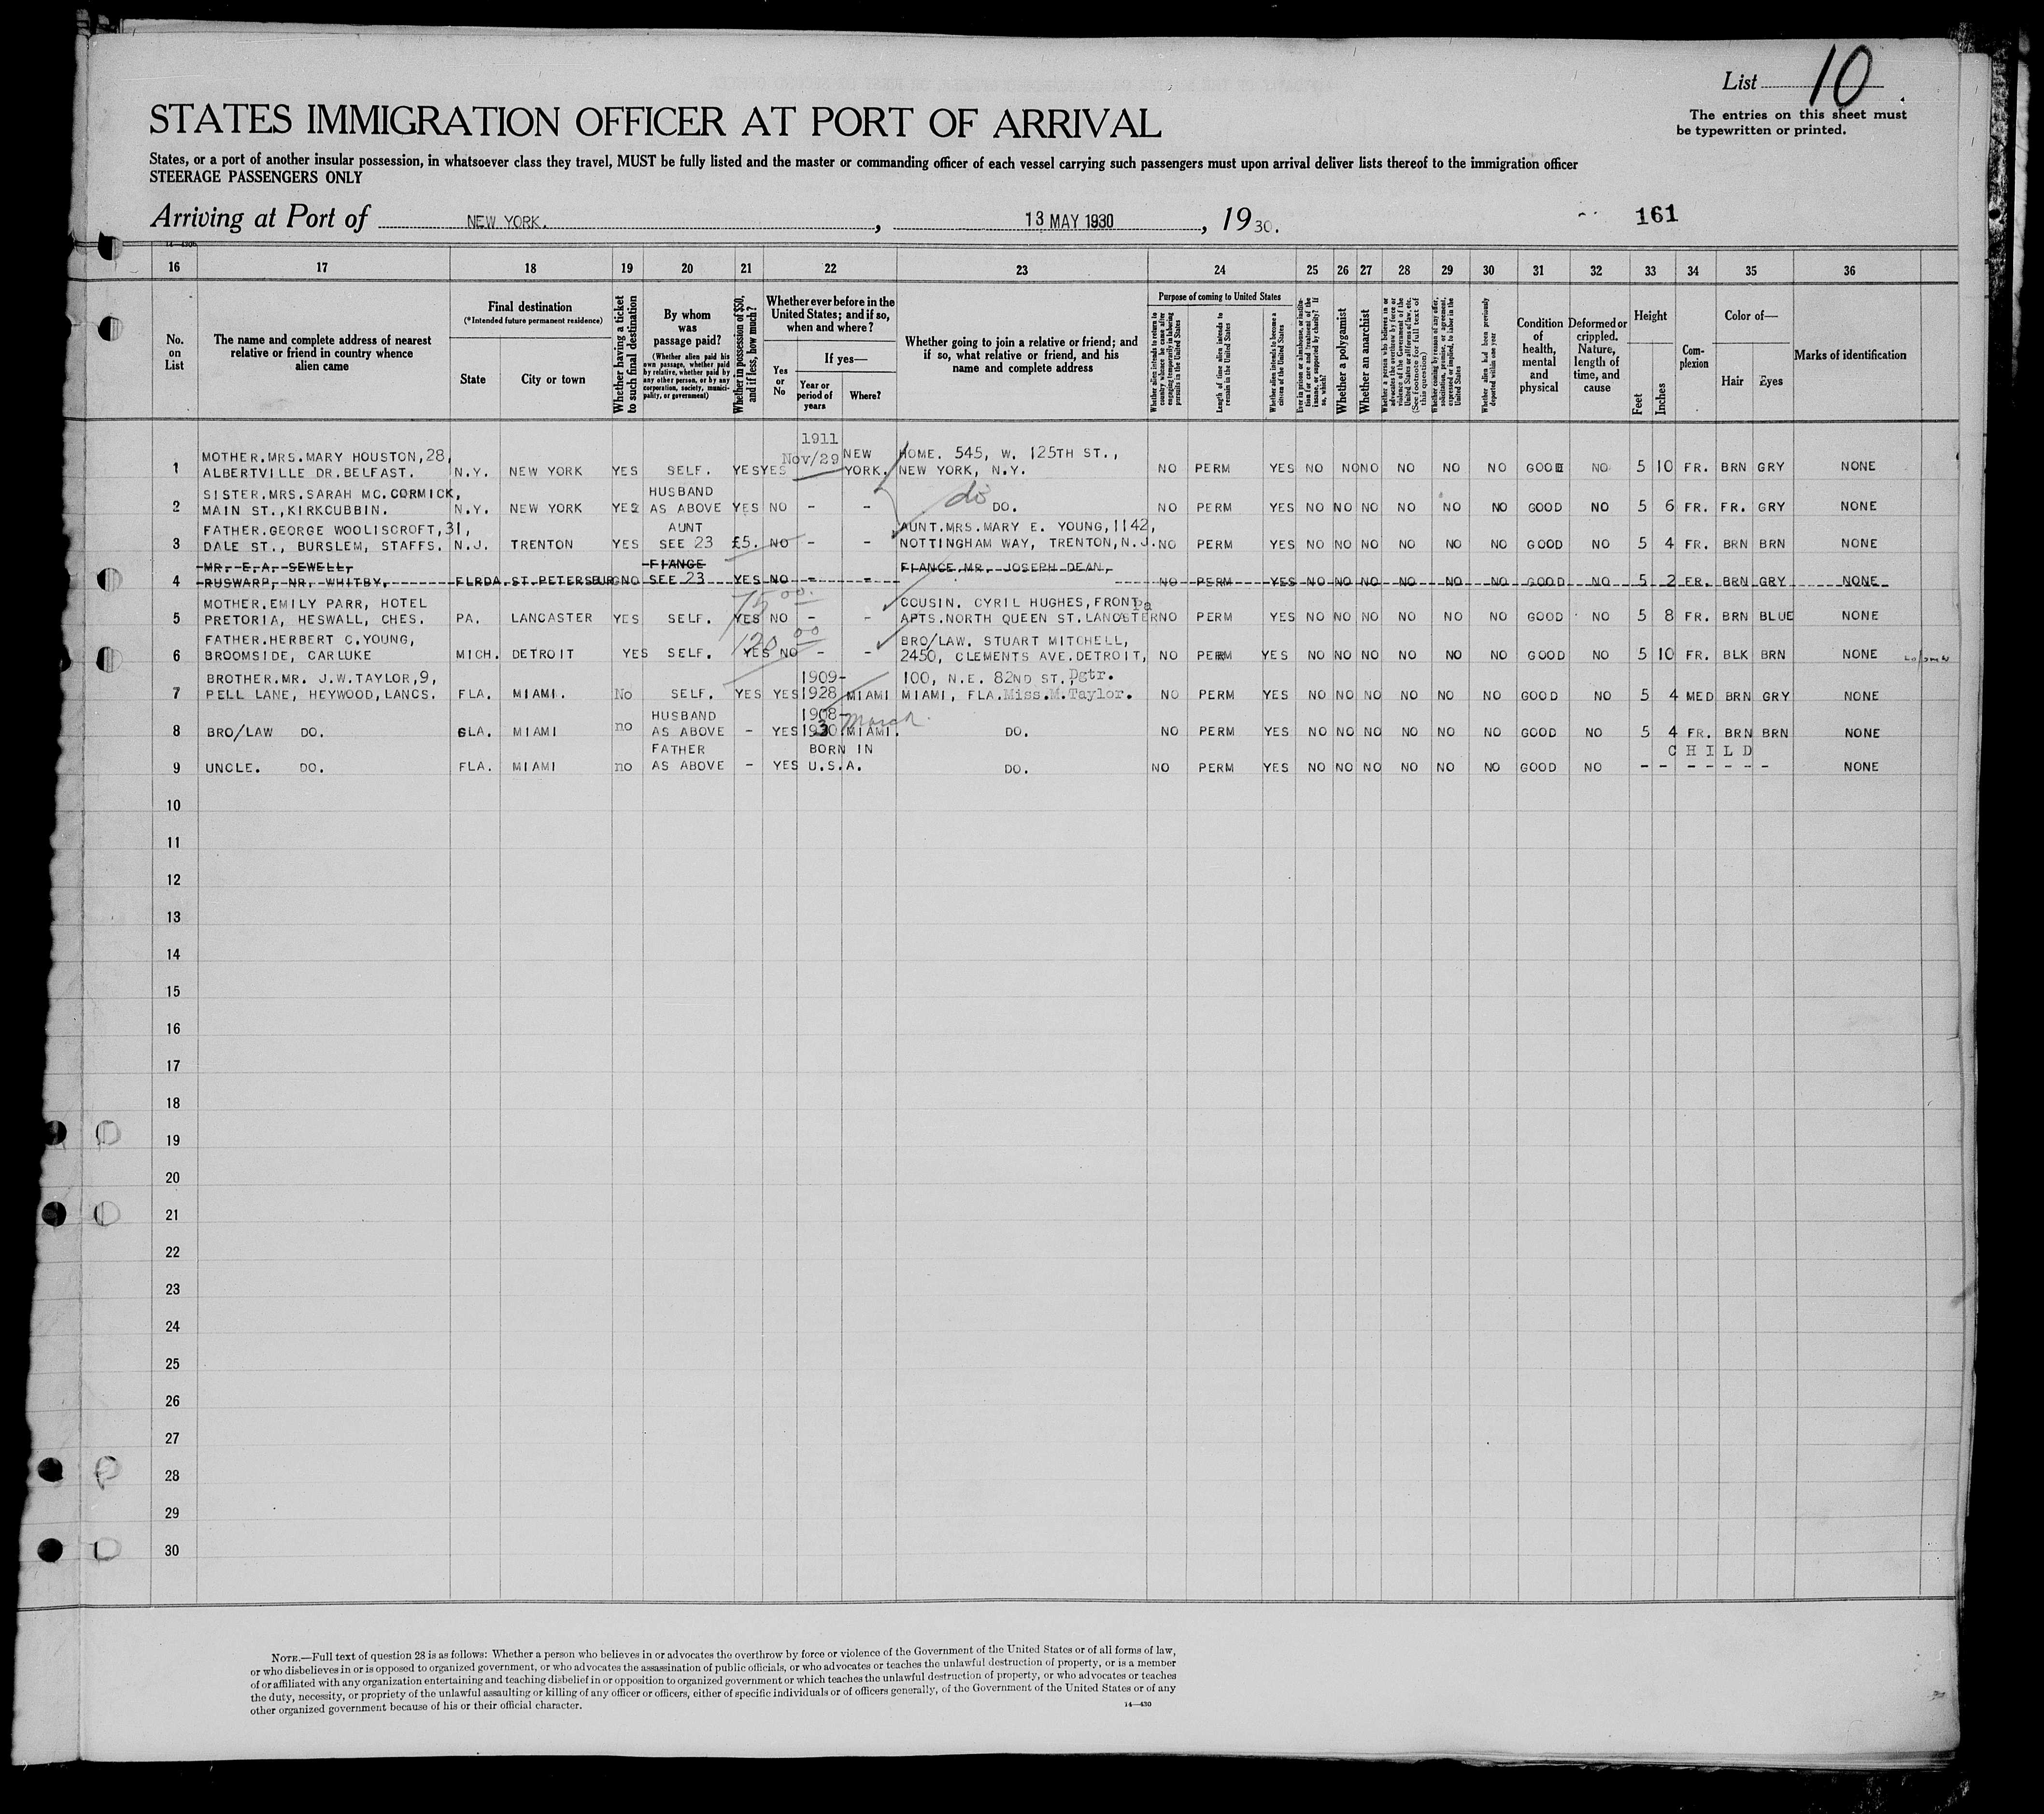 List 10
The entries on this sheet must
be typewritten or printed.
STATES IMMIGRATION OFFICER AT PORT OF ARRIVAL
States, or a port of another insular possession, in whatsoever class they travel, MUST be fully listed and the master or commanding officer of each vessel carrying such passengers must upon arrival deliver lists thereof to the immigration officer
STEERAGE PASSENGERS ONLY
Arriving at Port of NEW YORK. , 13 MAY 1930 , 19 30.
161
14—430
16 17 18 19 20 21 22 23 24 25 26 27 28 29 30 31 32 33 34 35 36
No.
on
List
The name and complete address of nearest
relative or friend in country whence
alien came
Final destination
(*Intended future permanent residence)
State
City or town
Whether having a ticket
to such final destination
By whom
was
passage paid?
(Whether alien paid his
own passage, whether paid
by relative, whether paid by
any other person, or by any
corporation, society, munici-
pality, or government)
Whether in possession of $50,
and if less, how much?
Whether ever before in the
United States; and if so,
when and where?
Yes
or
No
If yes—
Year or
period of
years
Where?
Whether going to join a relative or friend; and
if so, what relative or friend, and his
name and complete address
Purpose of coming to United States
Whether alien intends to return to
country whence he came after
engaging temporarily in laboring
pursuits in the United States
Length of time alien intends to
remain in the United States
Whether alien intends to become a
citizen of the United States
Ever in prison or almshouse, or institu-
tion for care and treatment of the
insane, or supported by charity? If
so, which?
Whether a polygamist
Whether an anarchist
Whether a person who believes in or
advocates the overthrow by force or
violence of the Government of the
United States or all forms of law, etc.
(See footnote for full text of
this question)
Whether coming by reason of any offer,
solicitation, promise, or agreement,
expressed or implied, to labor in the
United States
Whether alien had been previously
deported within one year
Condition
of
health,
mental
and
physical
Deformed or
crippled.
Nature,
length of
time, and
cause
Height
Feet
Inches
Com-
plexion
Color of—
Hair
Eyes
Marks of identification
1911
MOTHER.MRS.MARY HOUSTON,28, Nov/29 NEW HOME. 545, W. 125TH ST.,
1 ALBERTVILLE DR.BELFAST. N.Y. NEW YORK YES SELF. YES YES YORK. NEW YORK, N.Y. NO PERM YES NO NO NO NO NO NO GOOD NO 5 10 FR. BRN GRY NONE
SISTER.MRS.SARAH MC.CORMICK, HUSBAND do
2 MAIN ST.,KIRKCUBBIN. N.Y. NEW YORK YES AS ABOVE YES NO - - DO. NO PERM YES NO NO NO NO NO NO GOOD NO 5 6 FR. FR. GRY NONE
FATHER.GEORGE WOOLISCROFT,31, AUNT AUNT.MRS.MARY E. YOUNG,1142,
3 DALE ST., BURSLEM, STAFFS. N.J. TRENTON YES SEE 23 £5. NO - - NOTTINGHAM WAY, TRENTON,N.J. NO PERM YES NO NO NO NO NO NO GOOD NO 5 4 FR. BRN BRN NONE
MR. E.A. SEWELL, FIANCE FIANCE MR. JOSEPH DEAN,
4 RUSWARP, NR. WHITBY. FLRDA ST.PETERSBURG NO SEE 23 YES NO - - NO PERM YES NO NO NO NO NO NO GOOD NO 5 2 FR. BRN GRY NONE
75 00
MOTHER.EMILY PARR, HOTEL COUSIN. CYRIL HUGHES,FRONT Pa
5 PRETORIA, HESWALL, CHES. PA. LANCASTER YES SELF. YES NO - - APTS.NORTH QUEEN ST.LANCASTER NO PERM YES NO NO NO NO NO NO GOOD NO 5 8 FR. BRN BLUE NONE
120 00
FATHER.HERBERT C.YOUNG, BRO/LAW. STUART MITCHELL,
6 BROOMSIDE, CARLUKE MICH. DETROIT YES SELF. YES NO - - 2450, CLEMENTS AVE.DETROIT, NO PERM YES NO NO NO NO NO NO GOOD NO 5 10 FR. BLK BRN NONE
BROTHER.MR. J.W.TAYLOR,9, 1909- 100, N.E. 82ND ST., Dgtr.
7 PELL LANE, HEYWOOD,LANCS. FLA. MIAMI. No SELF. YES YES 1928 MIAMI MIAMI, FLA.Miss.M.Taylor. NO PERM YES NO NO NO NO NO NO GOOD NO 5 4 MED BRN GRY NONE
HUSBAND 1908- March
8 BRO/LAW DO. GLA. MIAMI no AS ABOVE - YES 1930 MIAMI. DO. NO PERM YES NO NO NO NO NO NO GOOD NO 5 4 FR. BRN BRN NONE
FATHER BORN IN CHILD
9 UNCLE. DO. FLA. MIAMI no AS ABOVE - YES U.S.A. DO. NO PERM YES NO NO NO NO NO NO GOOD NO - - - - - - NONE
10
11
12
13
14
15
16
17
18
19
20
21
22
23
24
25
26
27
28
29
30
NOTE.—Full text of question 28 is as follows: Whether a person who believes in or advocates the overthrow by force or violence of the Government of the United States or of all forms of law,
or who disbelieves in or is opposed to organized government, or who advocates the assassination of public officials, or who advocates or teaches the unlawful destruction of property, or is a member
of or affiliated with any organization entertaining and teaching disbelief in or opposition to organized government or which teaches the unlawful destruction of property, or who advocates or teaches
the duty, necessity, or propriety of the unlawful assaulting or killing of any officer or officers, either of specific individuals or of officers generally, of the Government of the United States or of any
other organized government because of his or their official character.
14—430